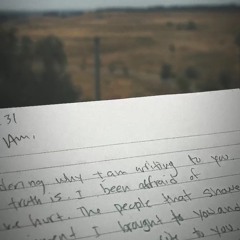 31
Mom,
dering why I am writing to you.
truth is, I been afraid of
hurt. The people that
I brought to you and
to you